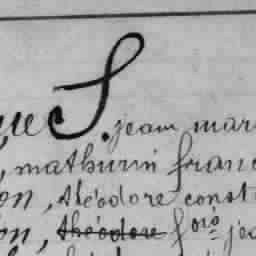 que S. jean mari
, mathurin franc
on, théodore const
on, théodore fois jea